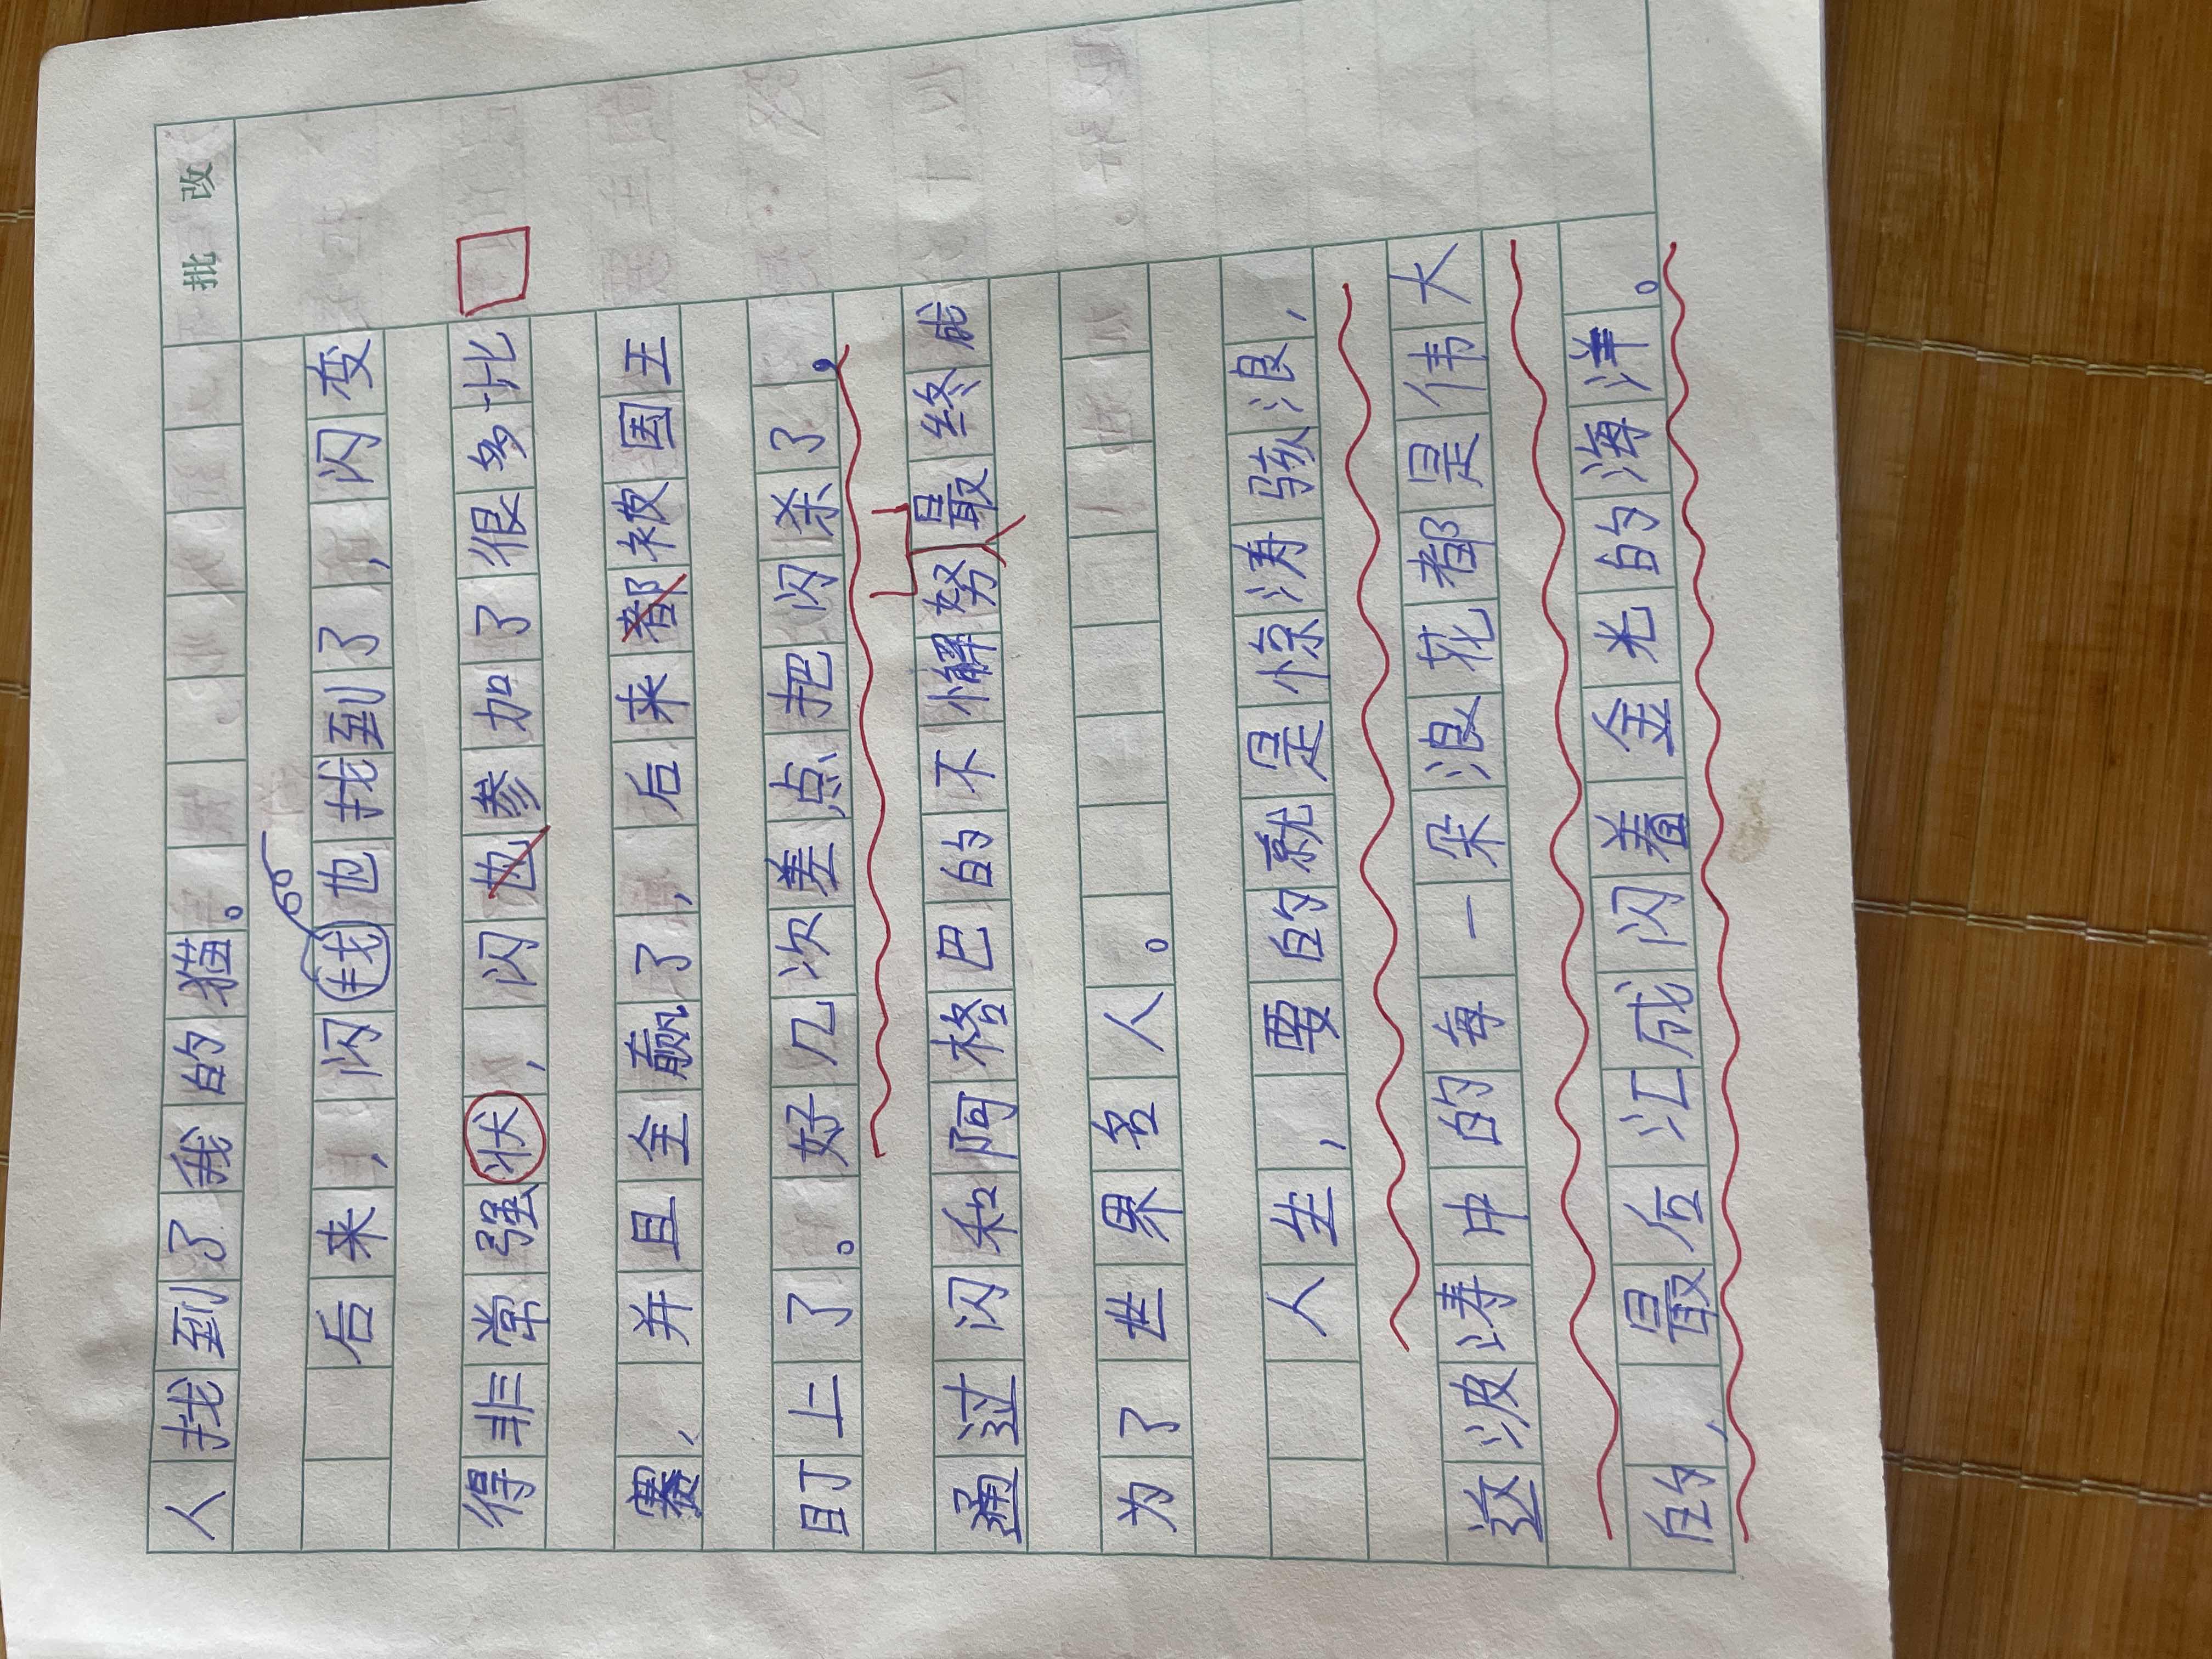 批改
人找到了我的猫。
后来，闪找也找到了，闪变
得非常强状，闪也参加了很多比
赛、并且全赢了，后来都被国王
盯上了。好几次差点把闪杀了。
通过闪和阿格巴的不懈努最终成
为了世界名人。
人生，要的就是惊涛骇浪，
这波涛中的每一朵浪花都是伟大
的，最后汇成闪着金光的海洋。